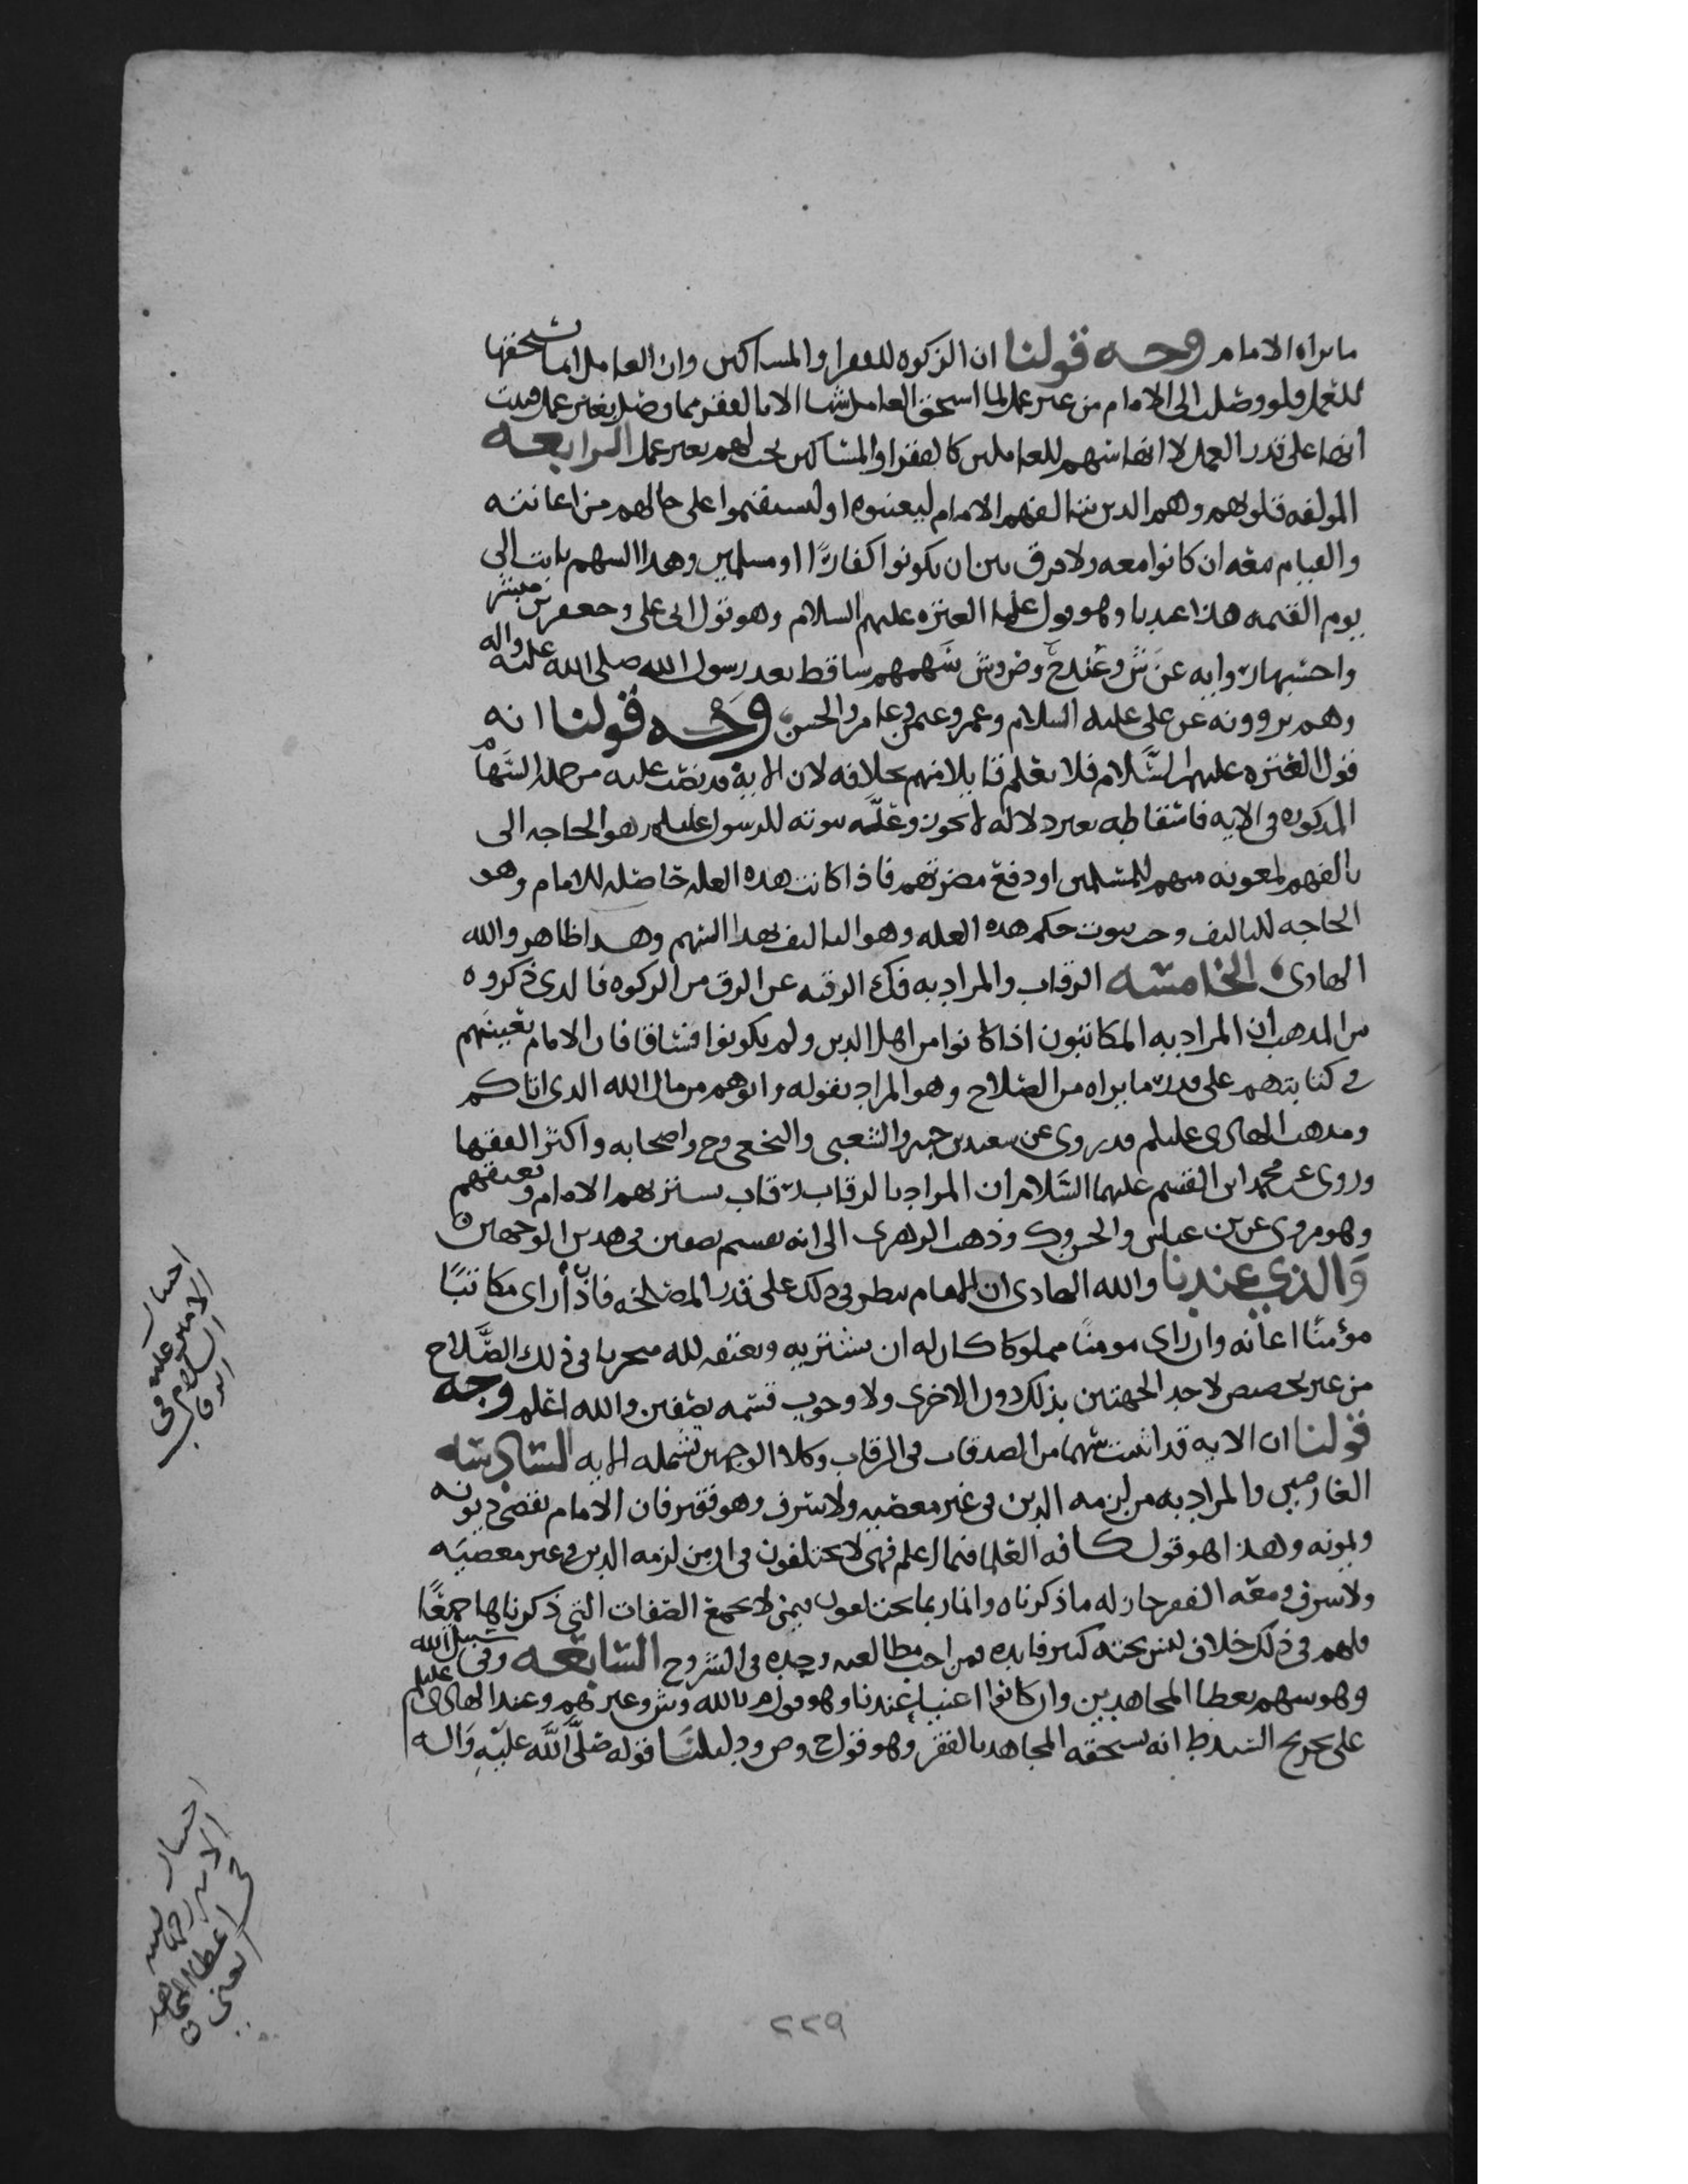 ما يراه الامام وجه قولنا ان الزكوه للفقرا والمساكين وان العامل انما يستحقها
للعمل فلو وصلت الى الامام من غير عمل لما استحق العامل شيا الا بالفقر مما وصل بغير عمل فثبت
انها على قدر العمل لا انها سهم للعاملين كالفقرا والمساكين تحب لهم بغير عمل الرابعه
المولفه قلوبهم وهم الدين يتالفهم الامام ليعينوه او ليستقيموا على حالهم من اعانته
والقيام معه ان كانوا معه ولا فرق بين ان يكونوا كفارًا او مسلمين وهدا السهم ثابت الى
يوم القيمه هذا عندنا وهو قول علما العتره عليهم السلام وهو قول ابي علي وجعفر بن مبشر
واحتسبها روايه عن ش وعندح وص وش سهمهم ساقط بعد رسول الله صلى الله عليه واله
وهم يروونه عن علي عليه السلام وعمر وعامر والحسن وجه قولنا انه
قول العتره عليهم السلام فلا نعلم قايلا منهم بخلافه لان الايه قد نصت عليه من جمله السهام
المدكوره في الايه فاسقاطه بغير دلاله لا يجوز وعله ثبوته للرسول عليلم هو الحاجه الى
تالفهم لمعونه منهم للمسلمين او دفع مضرتهم فاذا كانت هده العله حاصله للامام وهو
الحاجه للتاليف وجب ثبوت حكم هده العله وهو التاليف بهدا السهم وهدا ظاهر والله
الهادي الخامسه الرقاب والمراد به فك الرقبه عن الرق من الزكوه فالدى ذكروه
من المدهب ان المراد به المكاتبون اذا كانوا من اهل الدين ولم يكونوا فساقا فان الامام يعينهم
في كتابتهم على قدر ما يراه من الصلاح وهو المراد بقوله واتوهم من مال الله الدى اتاكم
ومدهب الهادى عليلم قد روى عن سعيد بن جبير والشعبي والنخعي وح واصحابه واكثر الفقها
وروى عن محمد ابن القسم عليهما السلام ان المراد بالرقاب رقاب يشتريهم الامام ويعتقهم
وهو مروى عن بن عباس والحسن وك وذهب الزهرى الى انه يقسم نصفين في هدين الوجهين
والذي عندنا والله الهادى ان الامام ينظر في دلك على قدر المصلحه فاذا راى مكاتبًا
مؤمنًا اعانه وان راى مومنًا مملوكا كان له ان يشتريه ويعتقه لله متحريا في ذلك الصلاح
من غير تخصيص لاحد الجهتين بذلك دون الاخرى ولا وجوب قسمه نصفين والله اعلم وجه
قولنا ان الايه قد اثبتت سهما من الصدقات في الرقاب وكلا الوجهين تشمله الايه السادسه
الغارمين والمراد به من لزمه الدين في غير معصيه ولا سرف وهو فقير فان الامام يقضي ديونه
وهذا هو قول كافه العلما فيما اعلم فهم لا يختلفون في ان من لزمه الدين في غير معصيه
ولا سرف ومعه الفقر جاز له ما ذكرناه وانما ربما يختلفون فيمن لا يجمع الصفات التي ذكرناها جميعًا
فلهم في ذلك خلاف ليس تحته كبير فايده فمن احب مطالعته وجده في الشروح السابعه وفي سبيل الله
وهو سهم يعطا المجاهدين وان كانوا اغنيا عندنا وهو قول م بالله وش وغيرهم وعند الهادى عليلم
على تخريج السيد ط انه يستحقه المجاهد بالفقر وهو قول ح وص ودليلنا قوله صلى الله عليه واله
احتيار
الامير عليه
السلام في
الرقاب
احتيار
الامير رحمه
في اعطا المجاهد
الغني
٢٢٩